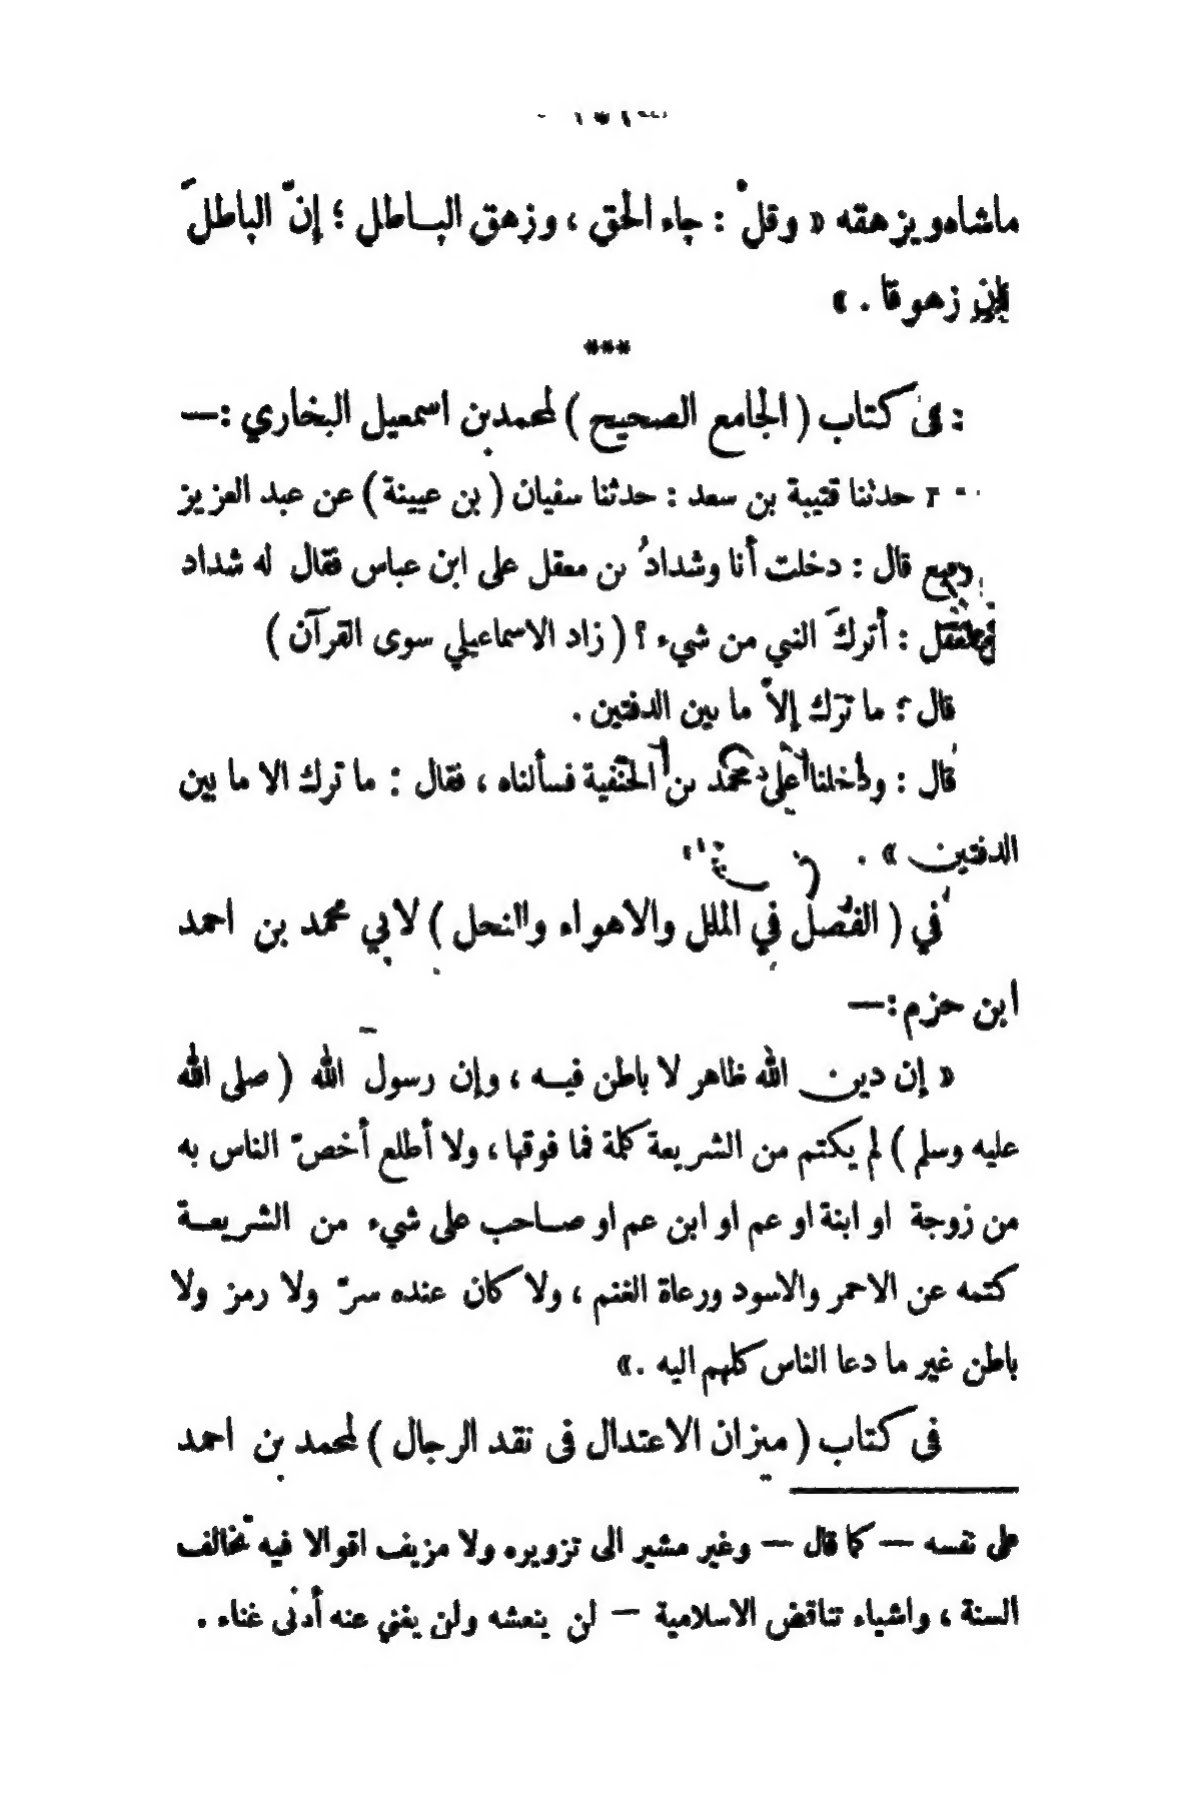 ماشاه ويزهقه « وقلْ : جاء الحق ، وزهق البـاطل ؛ إنّ الباطلَ
زهوقا . »
***
فى كتاب ( الجامع الصحيح ) لمحمد بن اسمعيل البخاري :—
حدثنا قتيبة بن سعد : حدثنا سفيان ( بن عيينة ) عن عبد العزيز
قال : دخلت أنا وشدادُ بن معقل على ابن عباس فقال له شداد
: أتركَ النبي من شيء ؟ ( زاد الاسماعيلي سوى القرآن )
قال : ما ترك إلاّ ما بين الدفتين .
قال : ودخلنا على محمد بن الحنفية فسألناه ، فقال : ما ترك الا ما بين
الدفتين » .
في ( الفصل في الملل والاهواء والنحل ) لابي محمد بن احمد
ابن حزم :—
« إن دين الله ظاهر لا باطن فيـه ، وإن رسول الله ( صلى الله
عليه وسلم ) لم يكتم من الشريعة كلمة فما فوقها ، ولا أطلع أخصّ الناس به
من زوجة او ابنة او عم او ابن عم او صـاحب على شيء من الشريعـة
كتمه عن الاحمر والاسود ورعاة الغنم ، ولا كان عنده سرّ ولا رمز ولا
باطن غير ما دعا الناس كلهم اليه . »
فى كتاب ( ميزان الاعتدال فى نقد الرجال ) لمحمد بن احمد
على نفسه — كما قال — وغير مشير الى تزويره ولا مزيف اقوالا فيه تخالف
السنة ، واشياء تناقض الاسلامية — لن ينعشه ولن يغني عنه أدنى غناء .